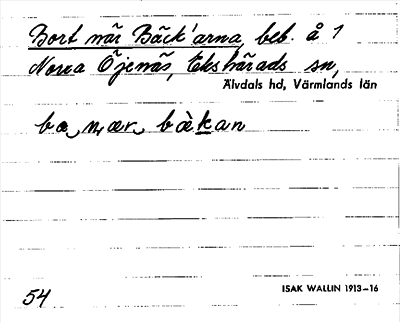 Bort när Bäck'arna, beb. å 1
Norra Öjenäs, Ekshärads sn,
Älvdals hd, Värmlands län
54
ISAK WALLIN 1913–16